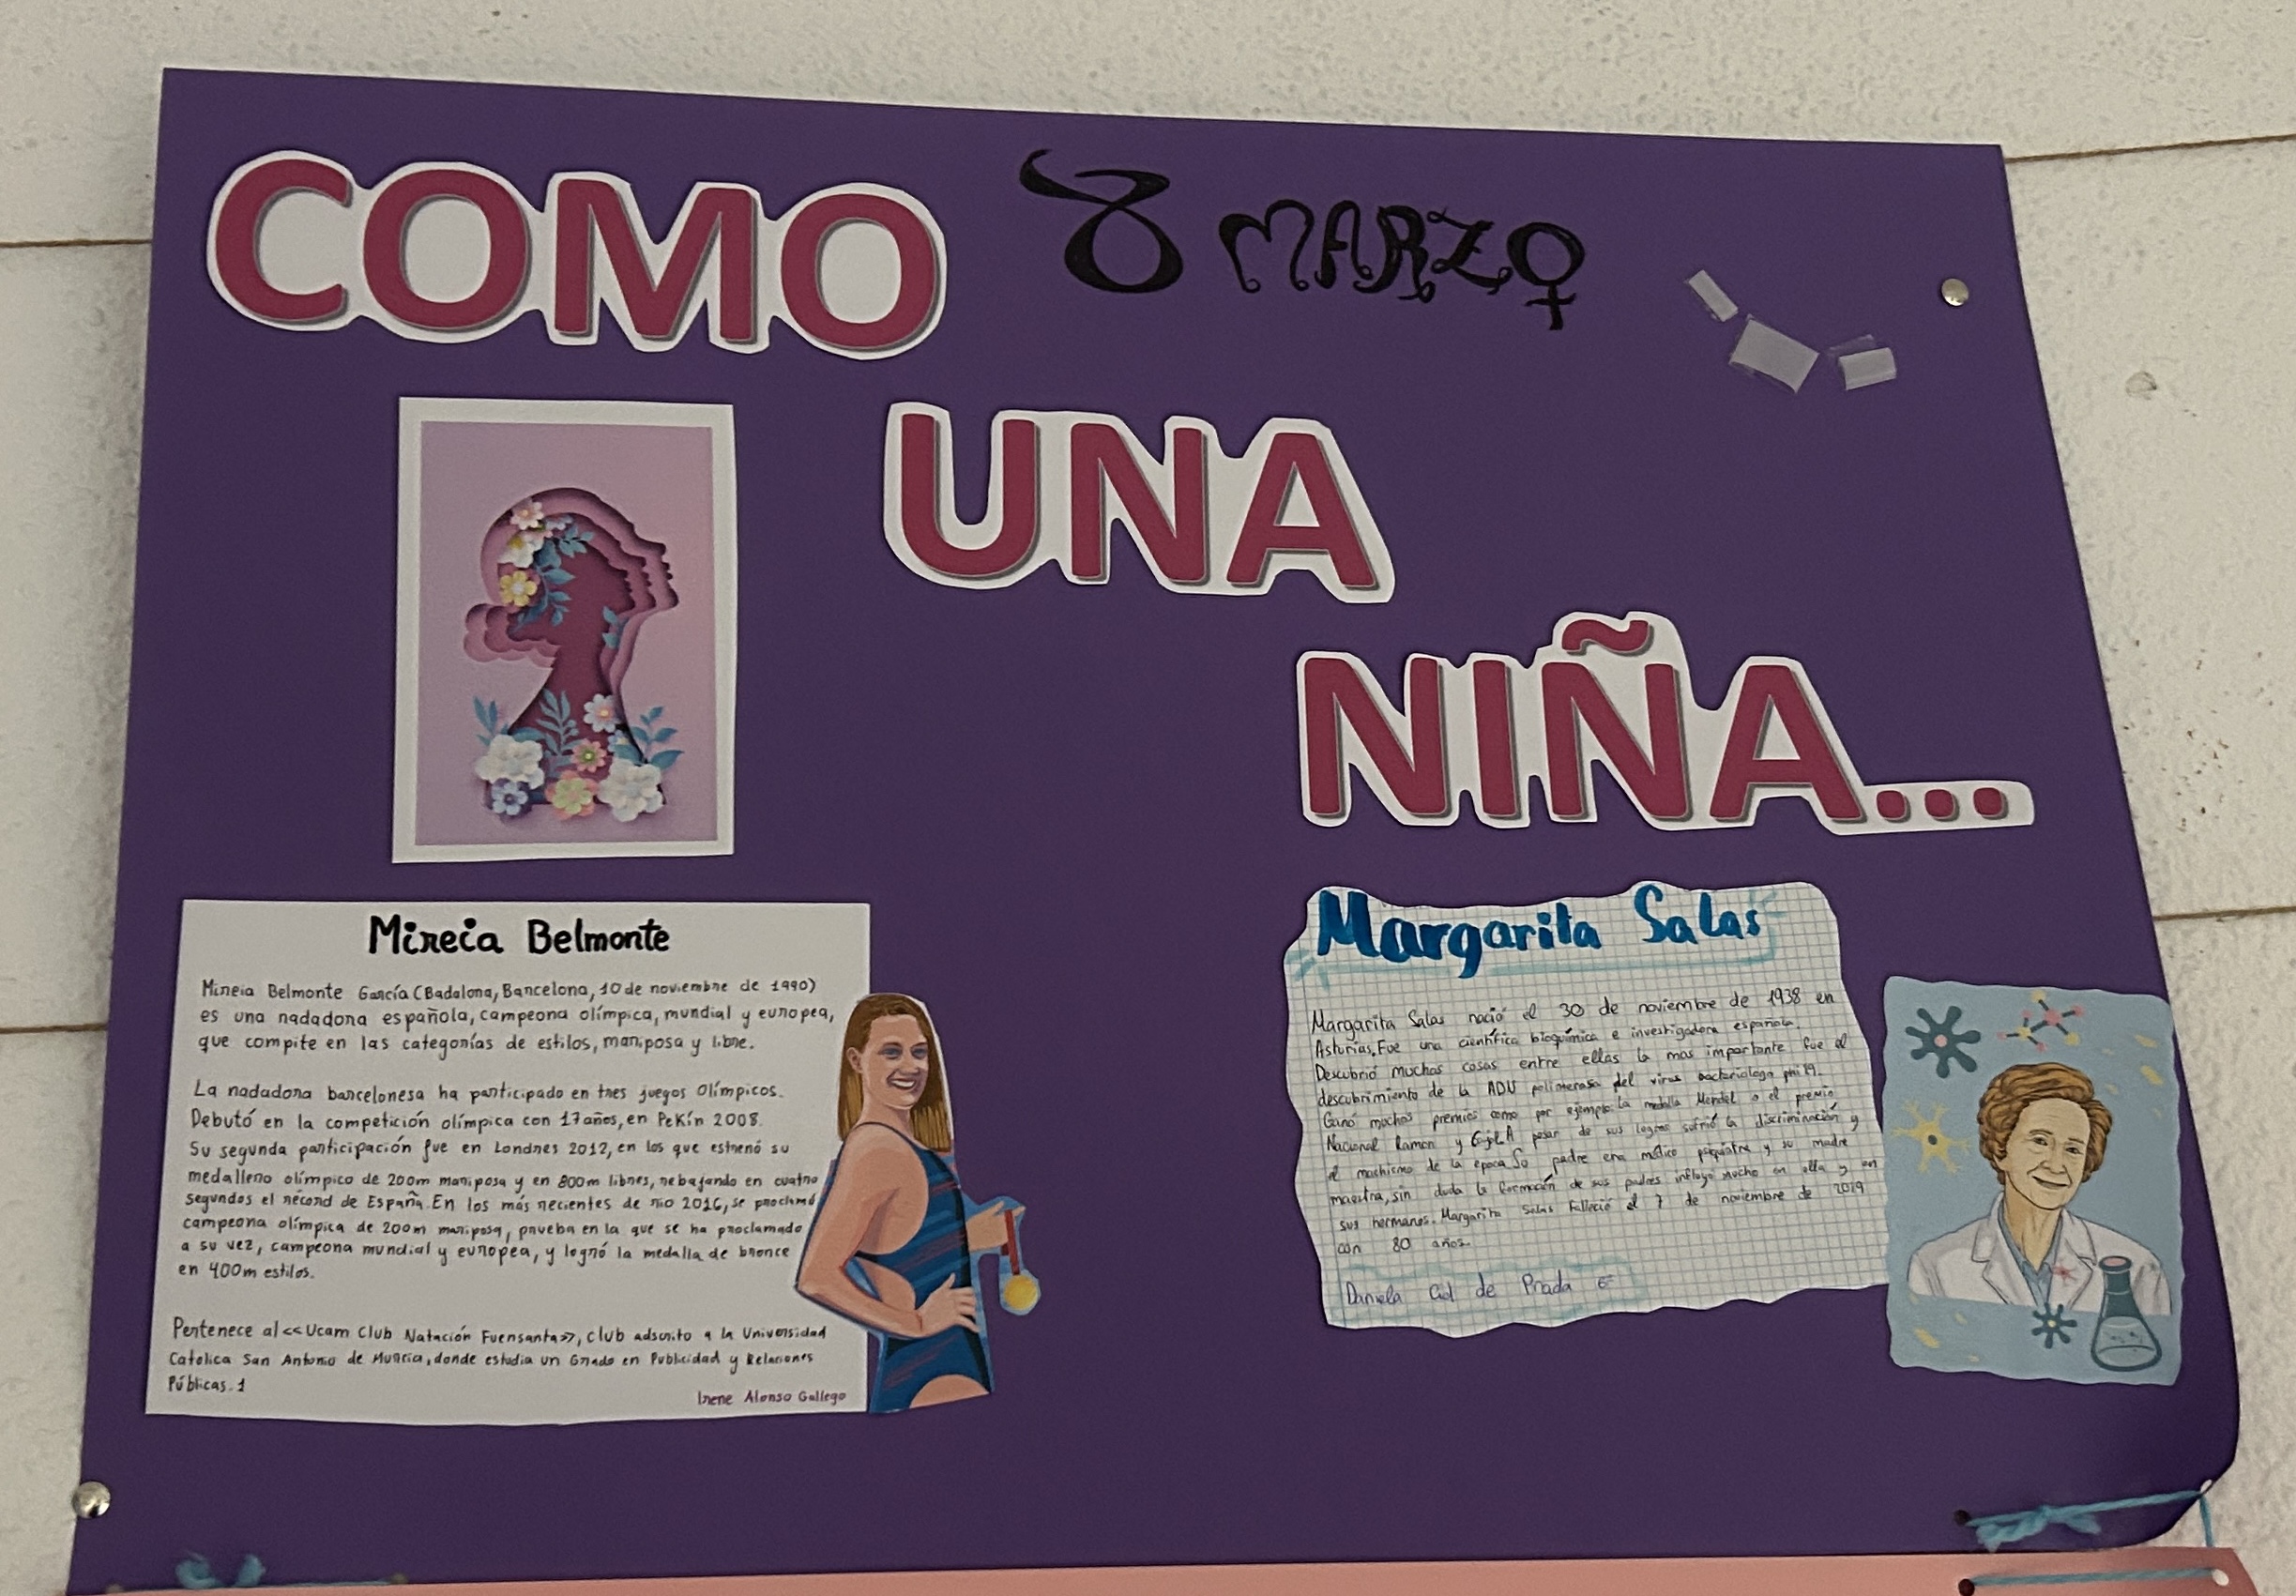 COMO
8 MARZO
UNA
NIÑA...
Mireia Belmonte
Mireia Belmonte García (Badalona, Barcelona, 10 de noviembre de 1990)
es una nadadora española, campeona olímpica, mundial y europea,
que compite en las categorías de estilos, mariposa y libre.
La nadadora barcelonesa ha participado en tres juegos Olímpicos.
Debutó en la competición olímpica con 17 años, en Pekín 2008.
Su segunda participación fue en Londres 2012, en los que estrenó su
medallero olímpico de 200m mariposa y en 800m libres, rebajando en cuatro
segundos el récord de España. En los más recientes de rio 2016, se proclamó
campeona olímpica de 200m mariposa, prueba en la que se ha proclamado
a su vez, campeona mundial y europea, y logró la medalla de bronce
en 400m estilos.
Pertenece al <<Ucam Club Natación Fuensanta>>, club adscrito a la Universidad
Catolica San Antonio de Murcia, donde estudia un Grado en Publicidad y Relaciones
Públicas. 1
Irene Alonso Gallego
Margarita Salas
Margarita Salas nació el 30 de noviembre de 1938 en
Asturias. Fue una científica bioquímica e investigadora española.
Descubrió muchas cosas entre ellas la mas importante fue el
descubrimiento de la ADN polimerasa del virus bacteriologo phi 19.
Ganó muchos premios como por ejemplo: la medalla Mendel o el premio
Nacional Ramon y Cajal. A pesar de sus logros sufrió la discriminación y
el machismo de la epoca. Su padre era médico psiquiatra y su madre
maestra, sin duda la formación de sus padres influyo mucho en ella y en
sus hermanos. Margarita Salas falleció el 7 de noviembre de 2019
con 80 años.
Daniela Cid de Prada